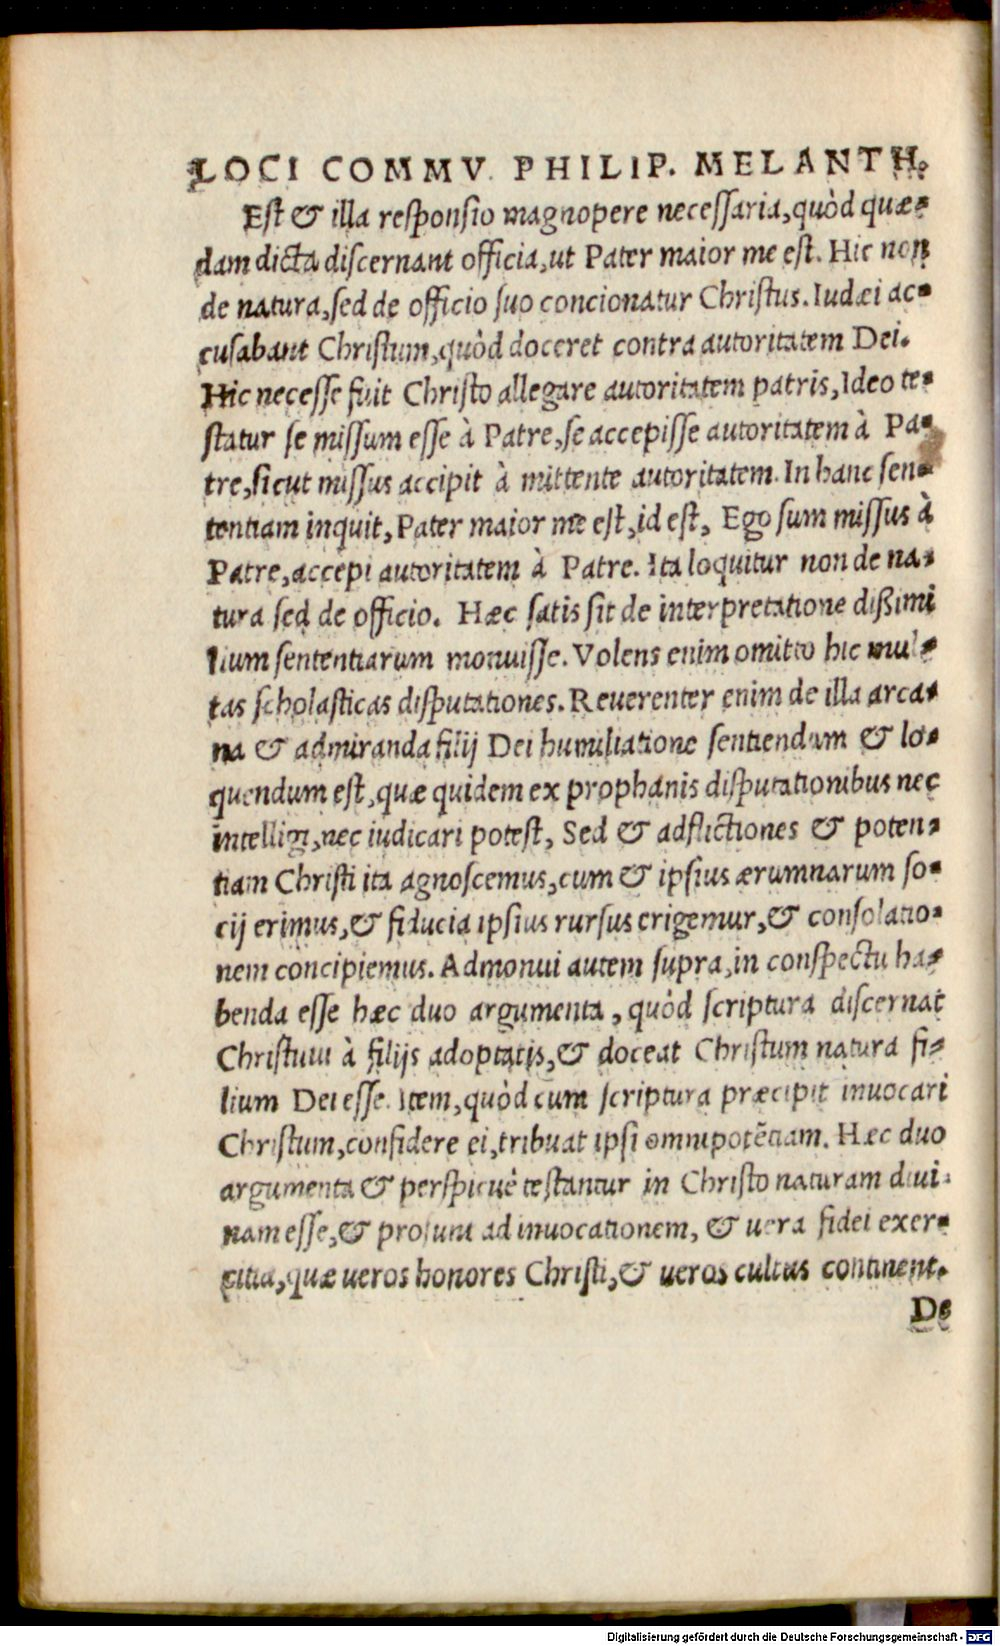 LOCI COMMV. PHILIP. MELANTH.
Est & illa responsio magnopere necessaria, quòd quæ-
dam dicta discernant officia, ut Pater maior me est. Hic non
de natura, sed de officio suo concionatur Christus. Iudæi ac-
cusabant Christum, quòd doceret contra autoritatem Dei.
Hic necesse fuit Christo allegare autoritatem patris, Ideo te-
statur se missum esse à Patre, se accepisse autoritatem à Pa-
tre, sicut missus accipit à mittente autoritatem. In hanc sen-
tentiam inquit, Pater maior me est, id est, Ego sum missus à
Patre, accepi autoritatem à Patre. Ita loquitur non de na-
tura sed de officio. Hæc satis sit de interpretatione dißimi
lium sententiarum monuisse. Volens enim omitto hic mul-
tas scholasticas disputationes. Reuerenter enim de illa arca-
na & admiranda filij Dei humiliatione sentiendum & lo-
quendum est, quæ quidem ex prophanis disputationibus nec
intelligi, nec iudicari potest, Sed & adflictiones & poten-
tiam Christi ita agnoscemus, cum & ipsius ærumnarum so-
cij erimus, & fiducia ipsius rursus erigemur, & consolatio-
nem concipiemus. Admonui autem supra, in conspectu ha-
benda esse hæc duo argumenta, quòd scriptura discernat
Christum à filijs adoptatis, & doceat Christum natura fi-
lium Dei esse. Item, quòd cum scriptura præcipit inuocari
Christum, confidere ei, tribuat ipsi omnipotẽtiam. Hæc duo
argumenta & perspicuè testantur in Christo naturam diui-
nam esse, & prosunt ad inuocationem, & uera fidei exer-
citia, quæ ueros honores Christi, & ueros cultus continent.
De
Digitalisierung gefördert durch die Deutsche Forschungsgemeinschaft - DFG